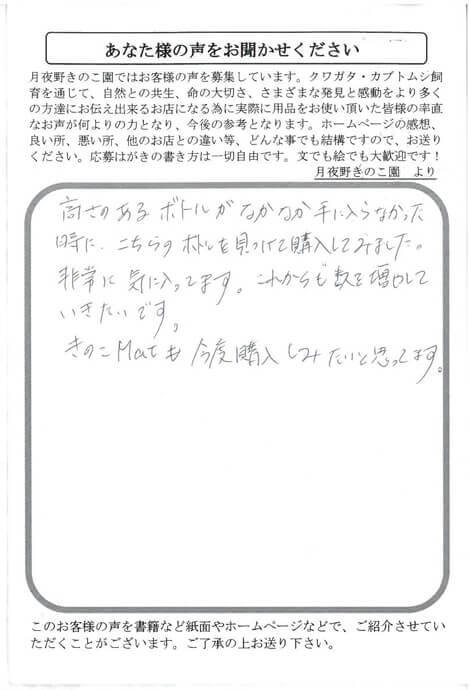 あなた様の声をお聞かせください
月夜野きのこ園ではお客様の声を募集しています。クワガタ・カブトムシ飼
育を通じて、自然との共生、命の大切さ、さまざまな発見と感動をより多く
の方達にお伝え出来るお店になる為に実際に用品をお使い頂いた皆様の率直
なお声が何よりの力となり、今後の参考となります。ホームページの感想、
良い所、悪い所、他のお店との違い等、どんな事でも結構ですので、お送り
ください。応募はがきの書き方は一切自由です。文でも絵でも大歓迎です！
月夜野きのこ園　より
高さのあるボトルがなかなか手に入らなかった
時に、こちらのボトルを見つけて購入してみました。
非常に気に入ってます。これからも数を増やして
いきたいです。
きのこMatも今度購入してみたいと思ってます。
このお客様の声を書籍など紙面やホームページなどで、ご紹介させてい
ただくことがございます。ご了承の上お送り下さい。